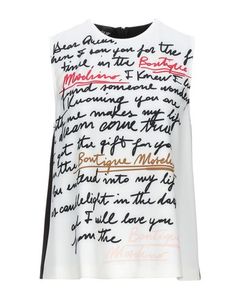 Dear
when I saw you for the f
time, in the Boutique
Moschino, I knew I
found someone wonder
Knowing you are
makes my life
dream come true
got the gift for you
Boutique Mosch
entered into my lif
as candlelight in the da
I will love you
from the Boutique
Moschino